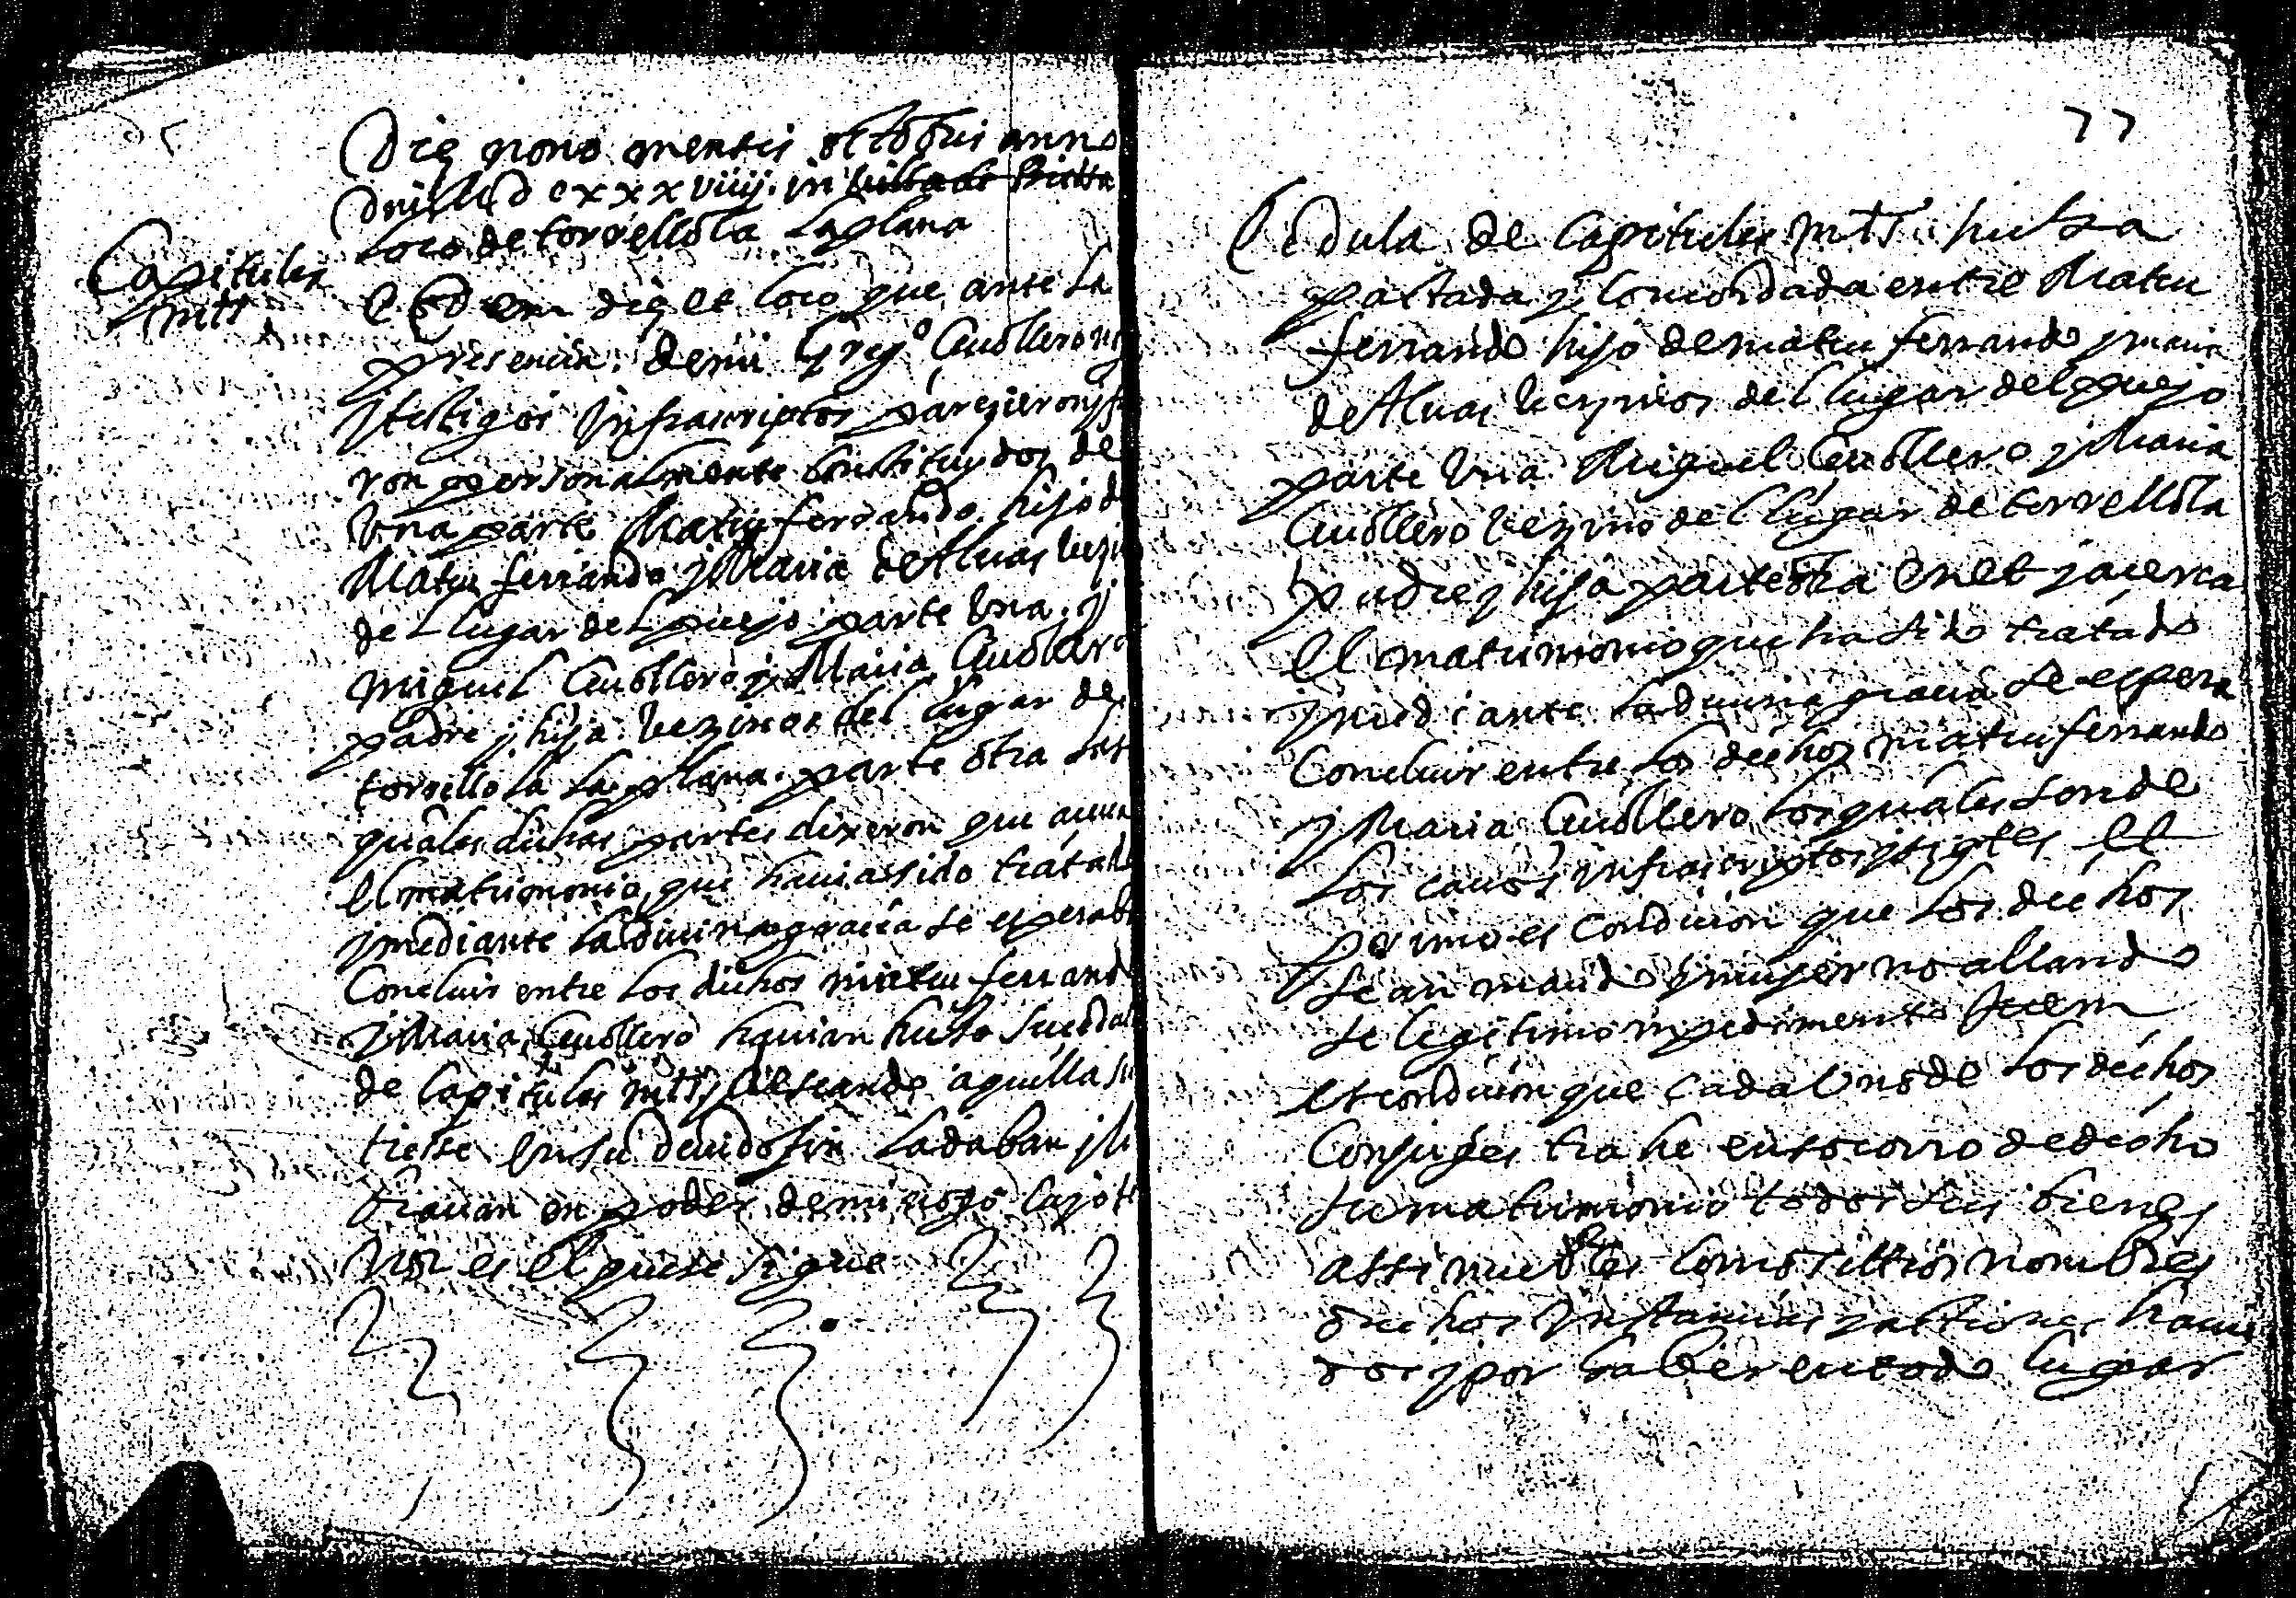 Die nono mensis octobris anno
Dni M D c x x x viiij. in villa de Bielsa
loco de torrellola laplana
Capitules
mtt
Eisdem die et loco que ante la
presencia. de mi Greg.º Cuollero n
y testigos Infrascriptos parezieron y f
ron personalmente constituydos de
Vna parte Mateu ferrando hijo d
Mateu ferrando y Maria de Aluas vezi
del lugar del pueyo parte Vna. y
miguel Cuollero y Maria Cuollero
padre y hija vezinos del lugar de
torrellola la plana. parte otra las
quales dichas partes dixeron que acerca
el matrimonio que hauia ssido tratado
y mediante la diuina gracia se esperaba
Concluir entre los dichos mateu ferrando
y Maria Cuollero hauian hecho su cedula
de Capitules mtt y desseando aquella su
tiesse en su deuido fin la daban y li
brauan en poder de mi dicho cuyo te
nor es el que se sigue
77
Cedula de Capitules mtt hecha
pactada y concordada entre Mateu
ferrando hijo de mateu ferrando y maria
de Aluas vezinos del lugar del pueyo
parte Vna Miguel Cuollero y Maria
Cuollero vezinos del lugar de torrellola
padre y hija parte otra En et y acerca
El matrimonio que ha sido tratado
y mediante la diuina gracia se espera
Concluir entre los dichos mateu ferrando
y Maria Cuollero los quales son de
los cauos infrascriptos y sigtes Et
primo es Condicion que los dichos
sean marido y muger no allando
se legitimo inpedimento Item
es condicion que cada Vno de los dichos
Conjuges trahe en socorro de dicho
su matrimonio todos sus bienes
assi muebles como sittios nombres
drechos Instancias y actiones haui
dos y por haber en todo lugar